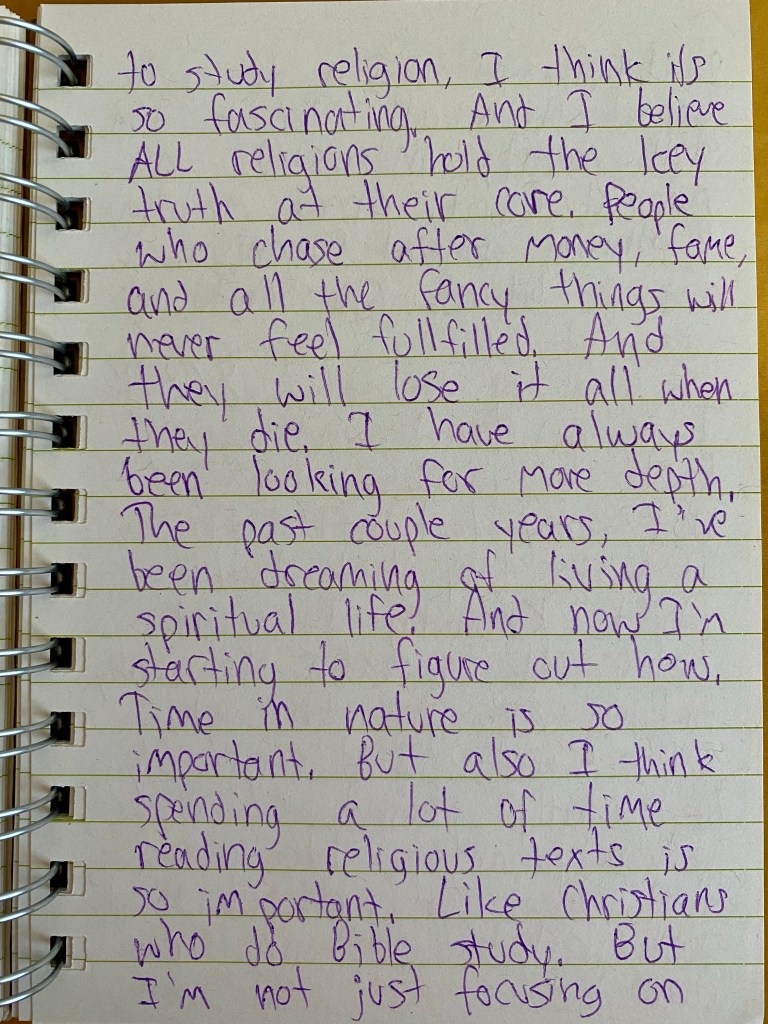 to study religion, I think its
so fascinating. And I believe
ALL religions hold the key
truth at their core. People
who chase after money, fame,
and all the fancy things will
never feel fullfilled. And
they will lose it all when
they die. I have always
been looking for more depth.
The past couple years, I've
been dreaming of living a
spiritual life. And now I'm
starting to figure out how.
Time in nature is so
important. But also I think
spending a lot of time
reading religious texts is
so important. Like Christians
who do Bible study. But
I'm not just focusing on